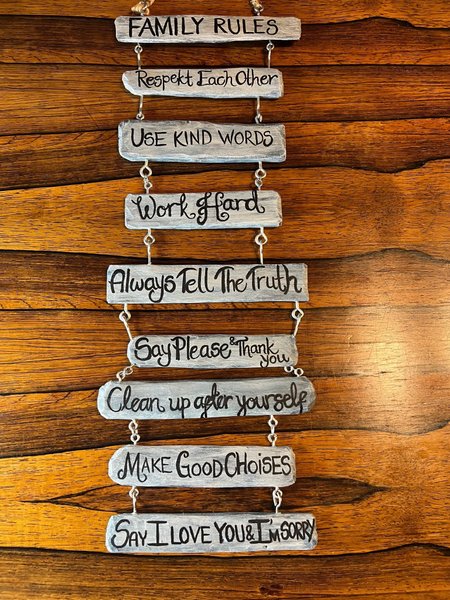 FAMILY RULES
Respekt Each Other
USE KIND WORDS
Work Hard
Always Tell The Truth
Say Please & Thank you
Clean up after yourself
MAKE GOOD CHOISES
SAY I LOVE YOU & I'M SORRY